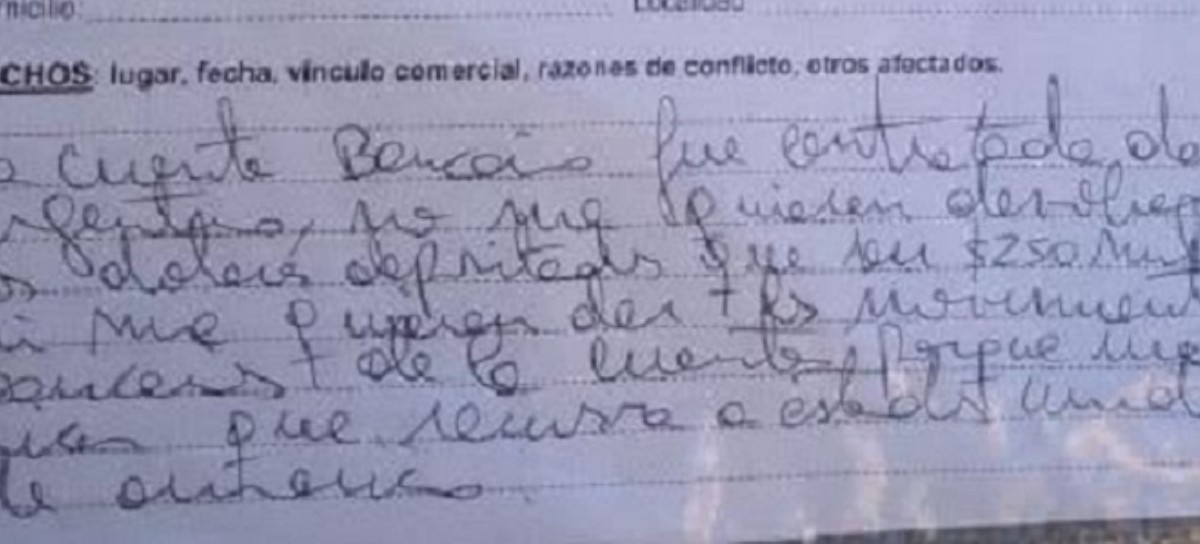 micilio: Localidad
CHOS: lugar, fecha, vínculo comercial, razones de conflicto, otros afectados.
a cuenta Bancaria fue contratada, de
rgentina, no me quieren devolver
os dolares depositados que son $250 mil
ni me quieren dar los movimient
bancarios de la cuenta, Porque me
que recurra a estados unid
de america